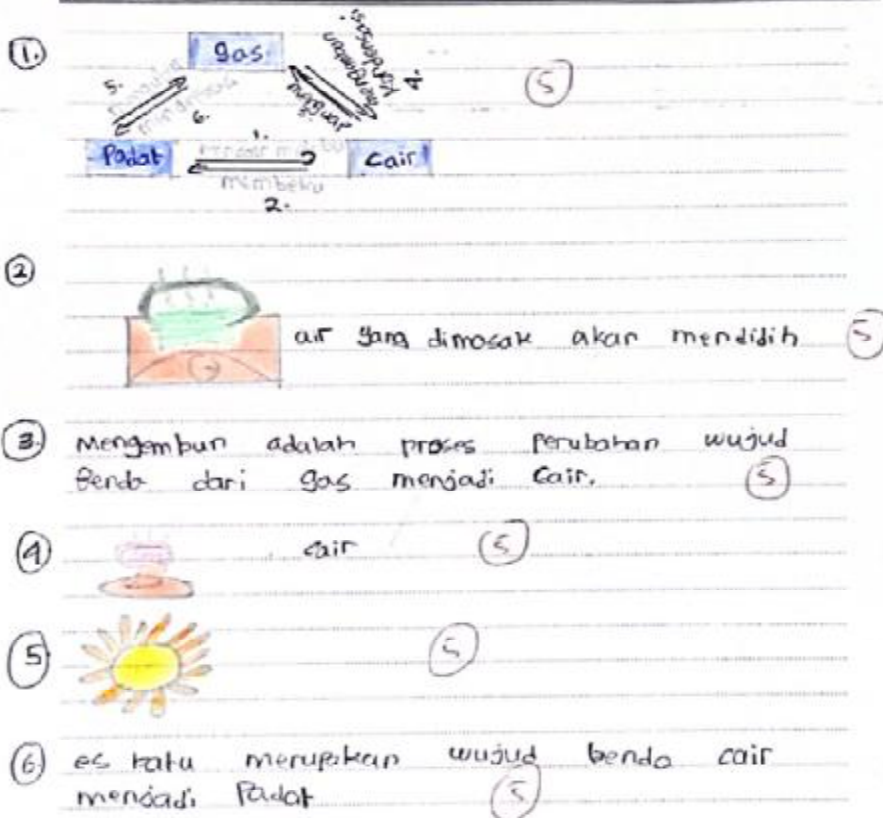 1.
gas
5.
6.
4.
mengembun
1.
Padat
Cair
membeku
2.
5
2
air yang dimasak akan mendidih
5
3. Mengembun adalah proses perubahan wujud
Benda dari gas menjadi Cair.
5
4
cair
5
5
5
6 es batu merupakan wujud benda cair
menjadi Padat
5